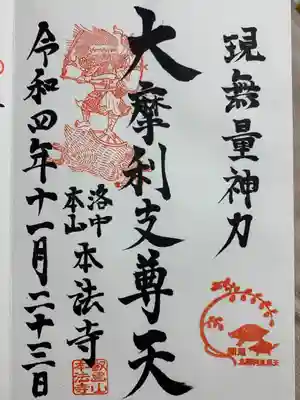 現無量神力
大摩利支尊天
洛中
本山
本法寺
令和四年十一月二十三日
本法寺